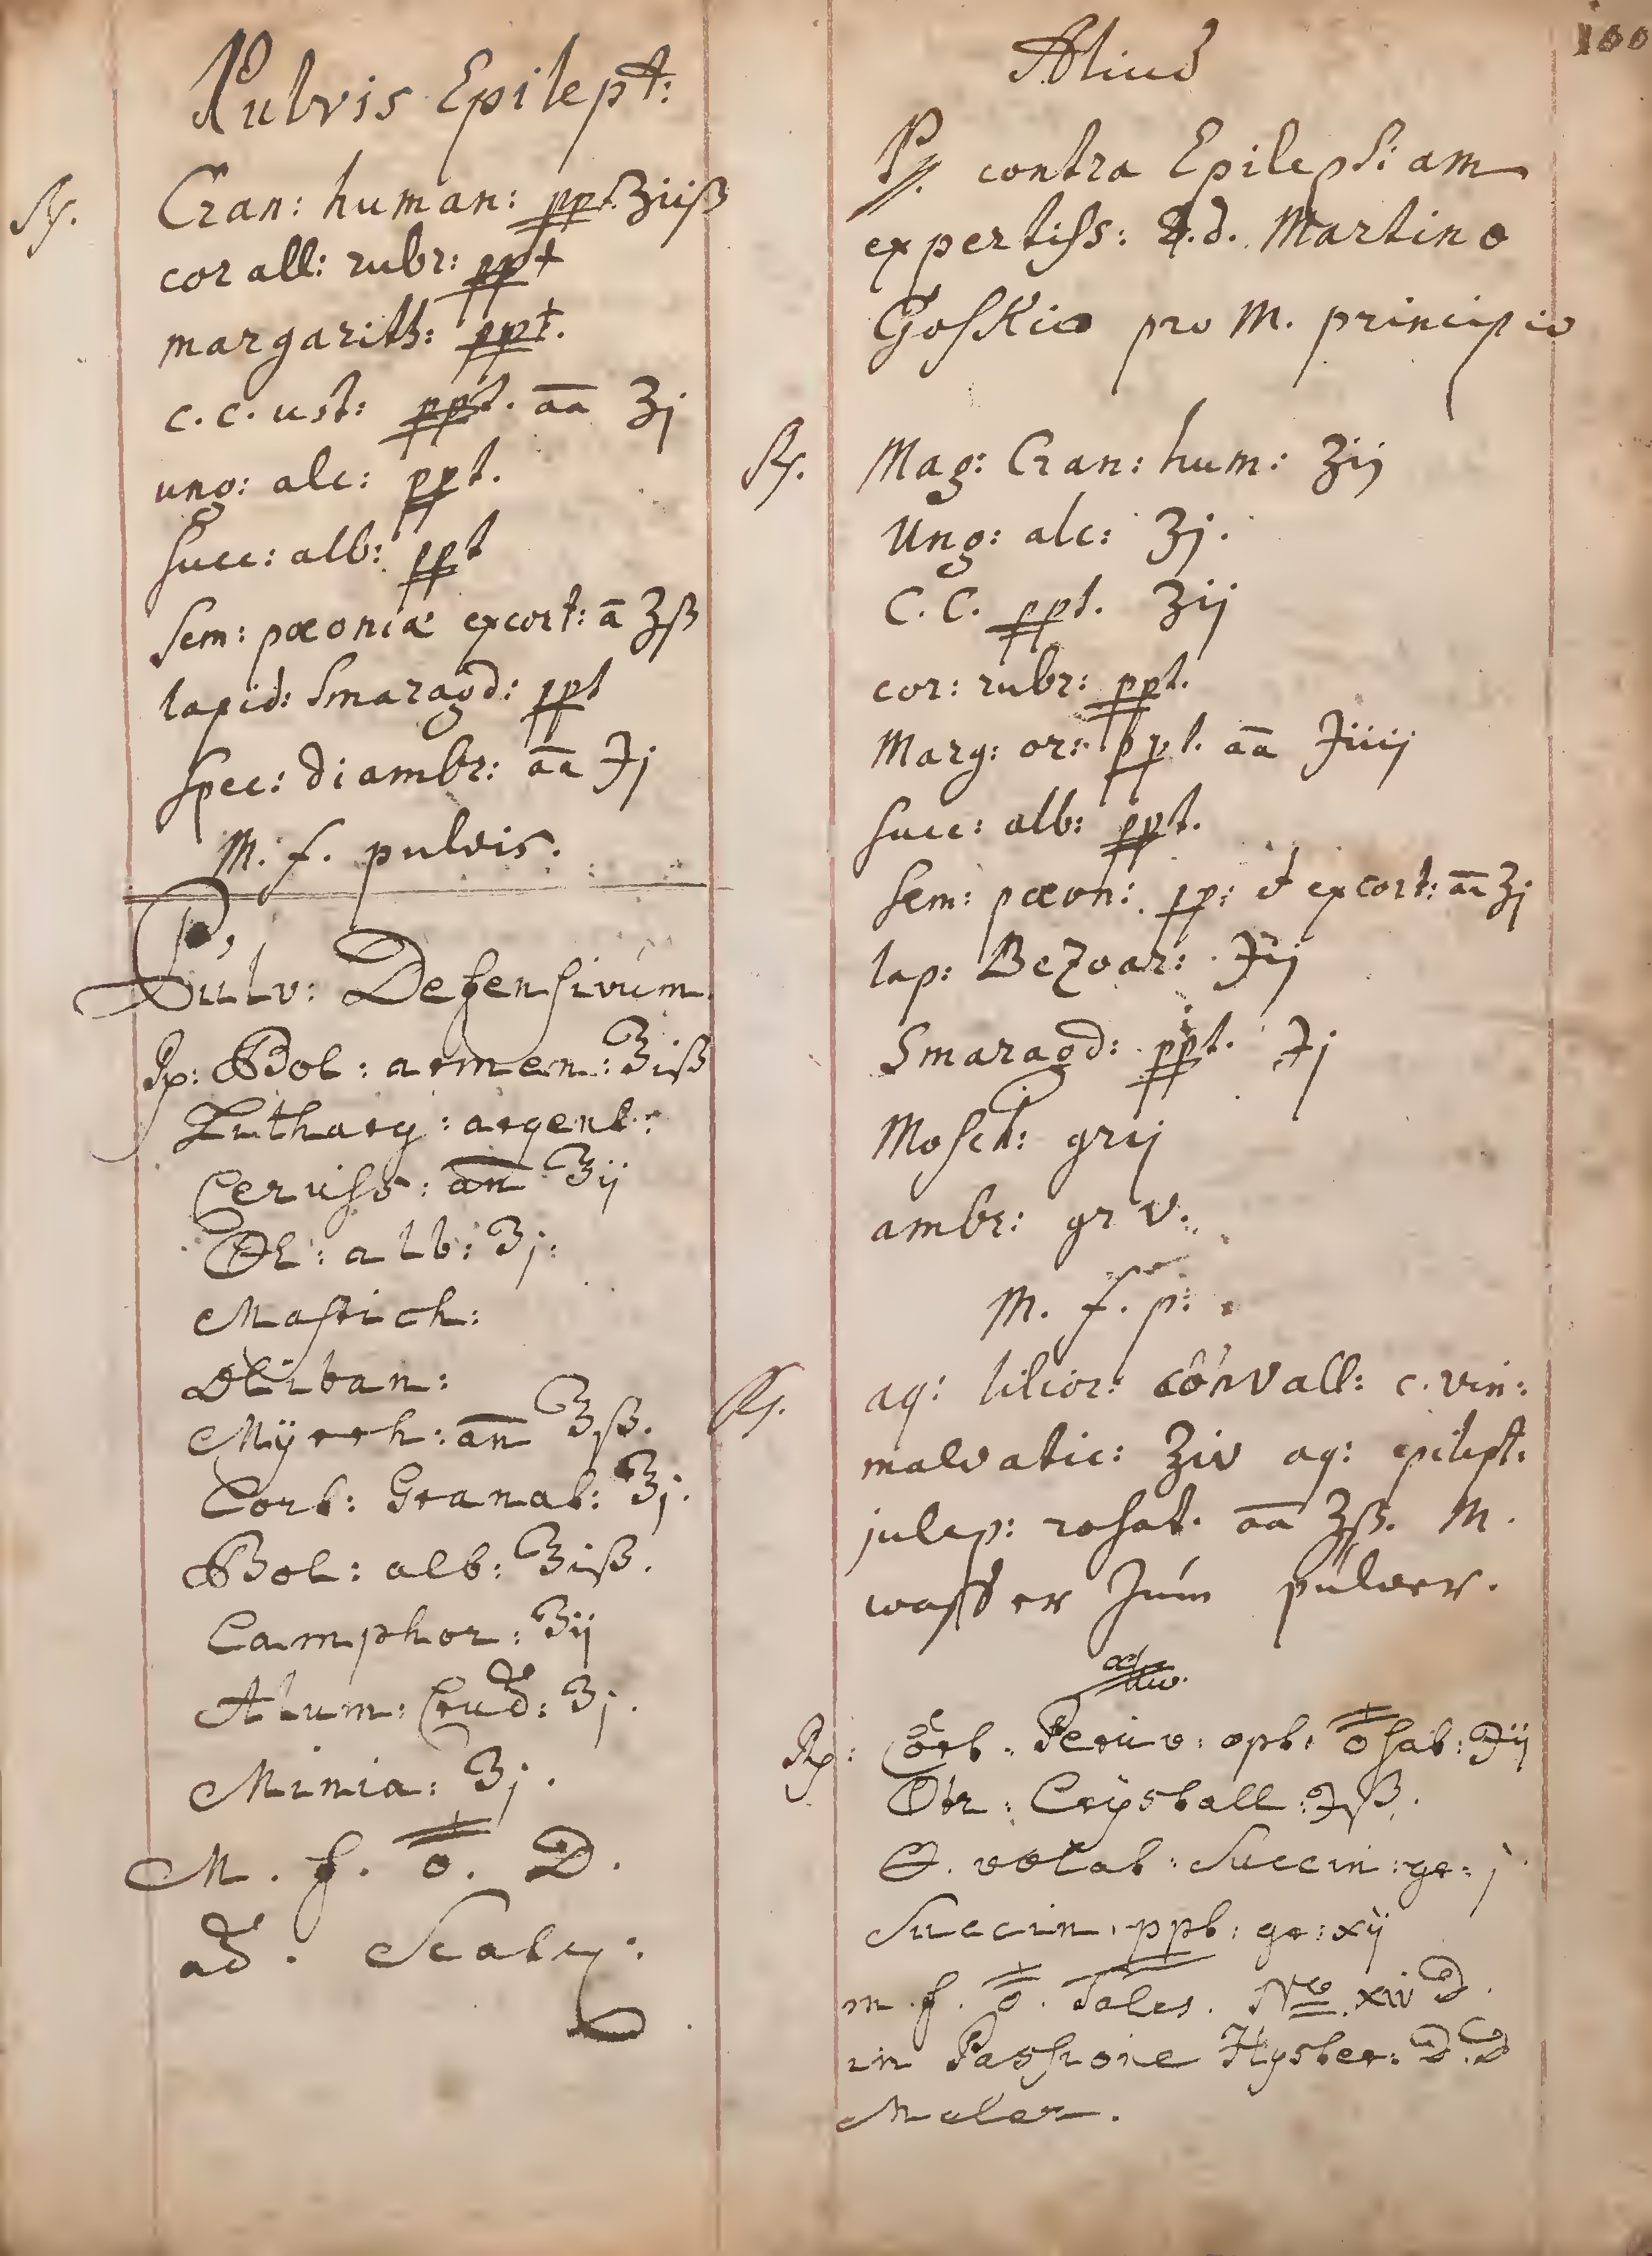 100
Pulvis Epilept:
℞. Cran: human: ppt ʒiiß
corall: rubr: ppt
margarith: ppt.
c. c. ust: ppt. āā ʒj
ung: alc: ppt.
Succ: alb: ppt
Sem: pæoniæ excort: ā ʒß
lapid: Smaragd: ppt
Spec: diambr: āā ℈j
M. f. pulvis.
Pulv: Defensivúm
℞: Bol: armen: ʒiß
Litharg: argent:
Ceruss: an ʒij
alb: ʒj:
Mastich:
Oliban:
Mÿrrh: an ʒß.
Cort: Granat: ʒj.
Bol: alb: ʒiß.
Camphor: ʒij
Alum: Crud: ʒj.
Minia: ʒj.
M. f. D.
ad. Scatu:
Aliud
contra Epilepsiam
expertiss: D.d. Martino
Goskio pro M. principio
℞. Mag: Cran: hum: ʒij
Ung: alc: ʒj.
C. C. ppt. ʒij
cor: rubr: ppt.
Marg: or: ppt. āā ℈iiij
Succ: alb: ppt.
Sem: pæon: pp: et excort: āā ʒj
lap: Bezoar: ℈ij
Smaragd: ppt. ℈j
Mosch: gr ij
ambr: gr v.
M. f. p:
℞. aq: lilior: cónvall: c. vin:
malvatic: ʒiv aq: epilept:
julep: rosat. āā ʒß. M.
wasser zúm pulver.
℞: Cort. Peruv: opt: ℈ij
Crÿstall: ℈ß.
volat: Succin: gr: j
Succin. ppt: gr: xij
m. f. Tales. No xiv D.
in Passione Hyster: D. D